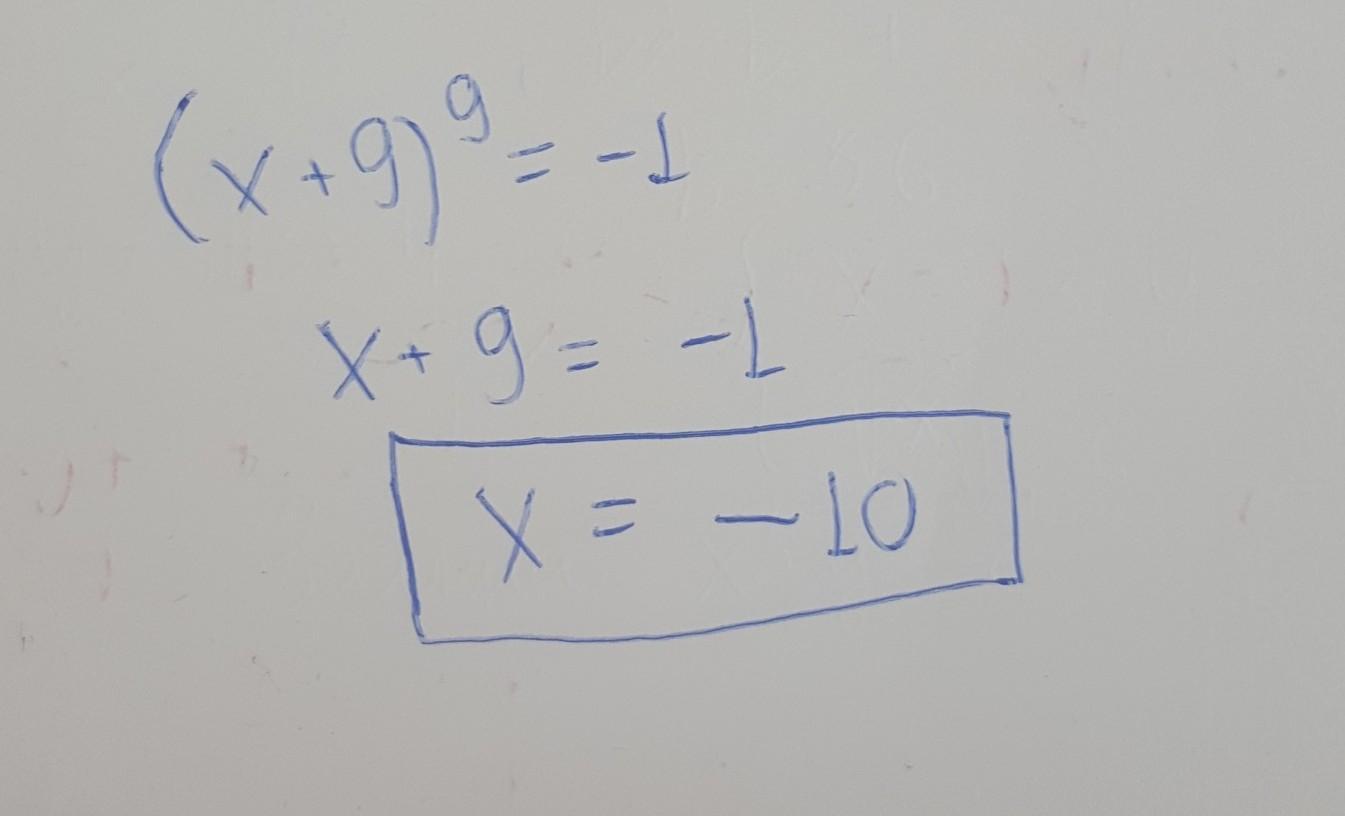 (x+9)⁹ = -1
x+9 = -1
x = -10